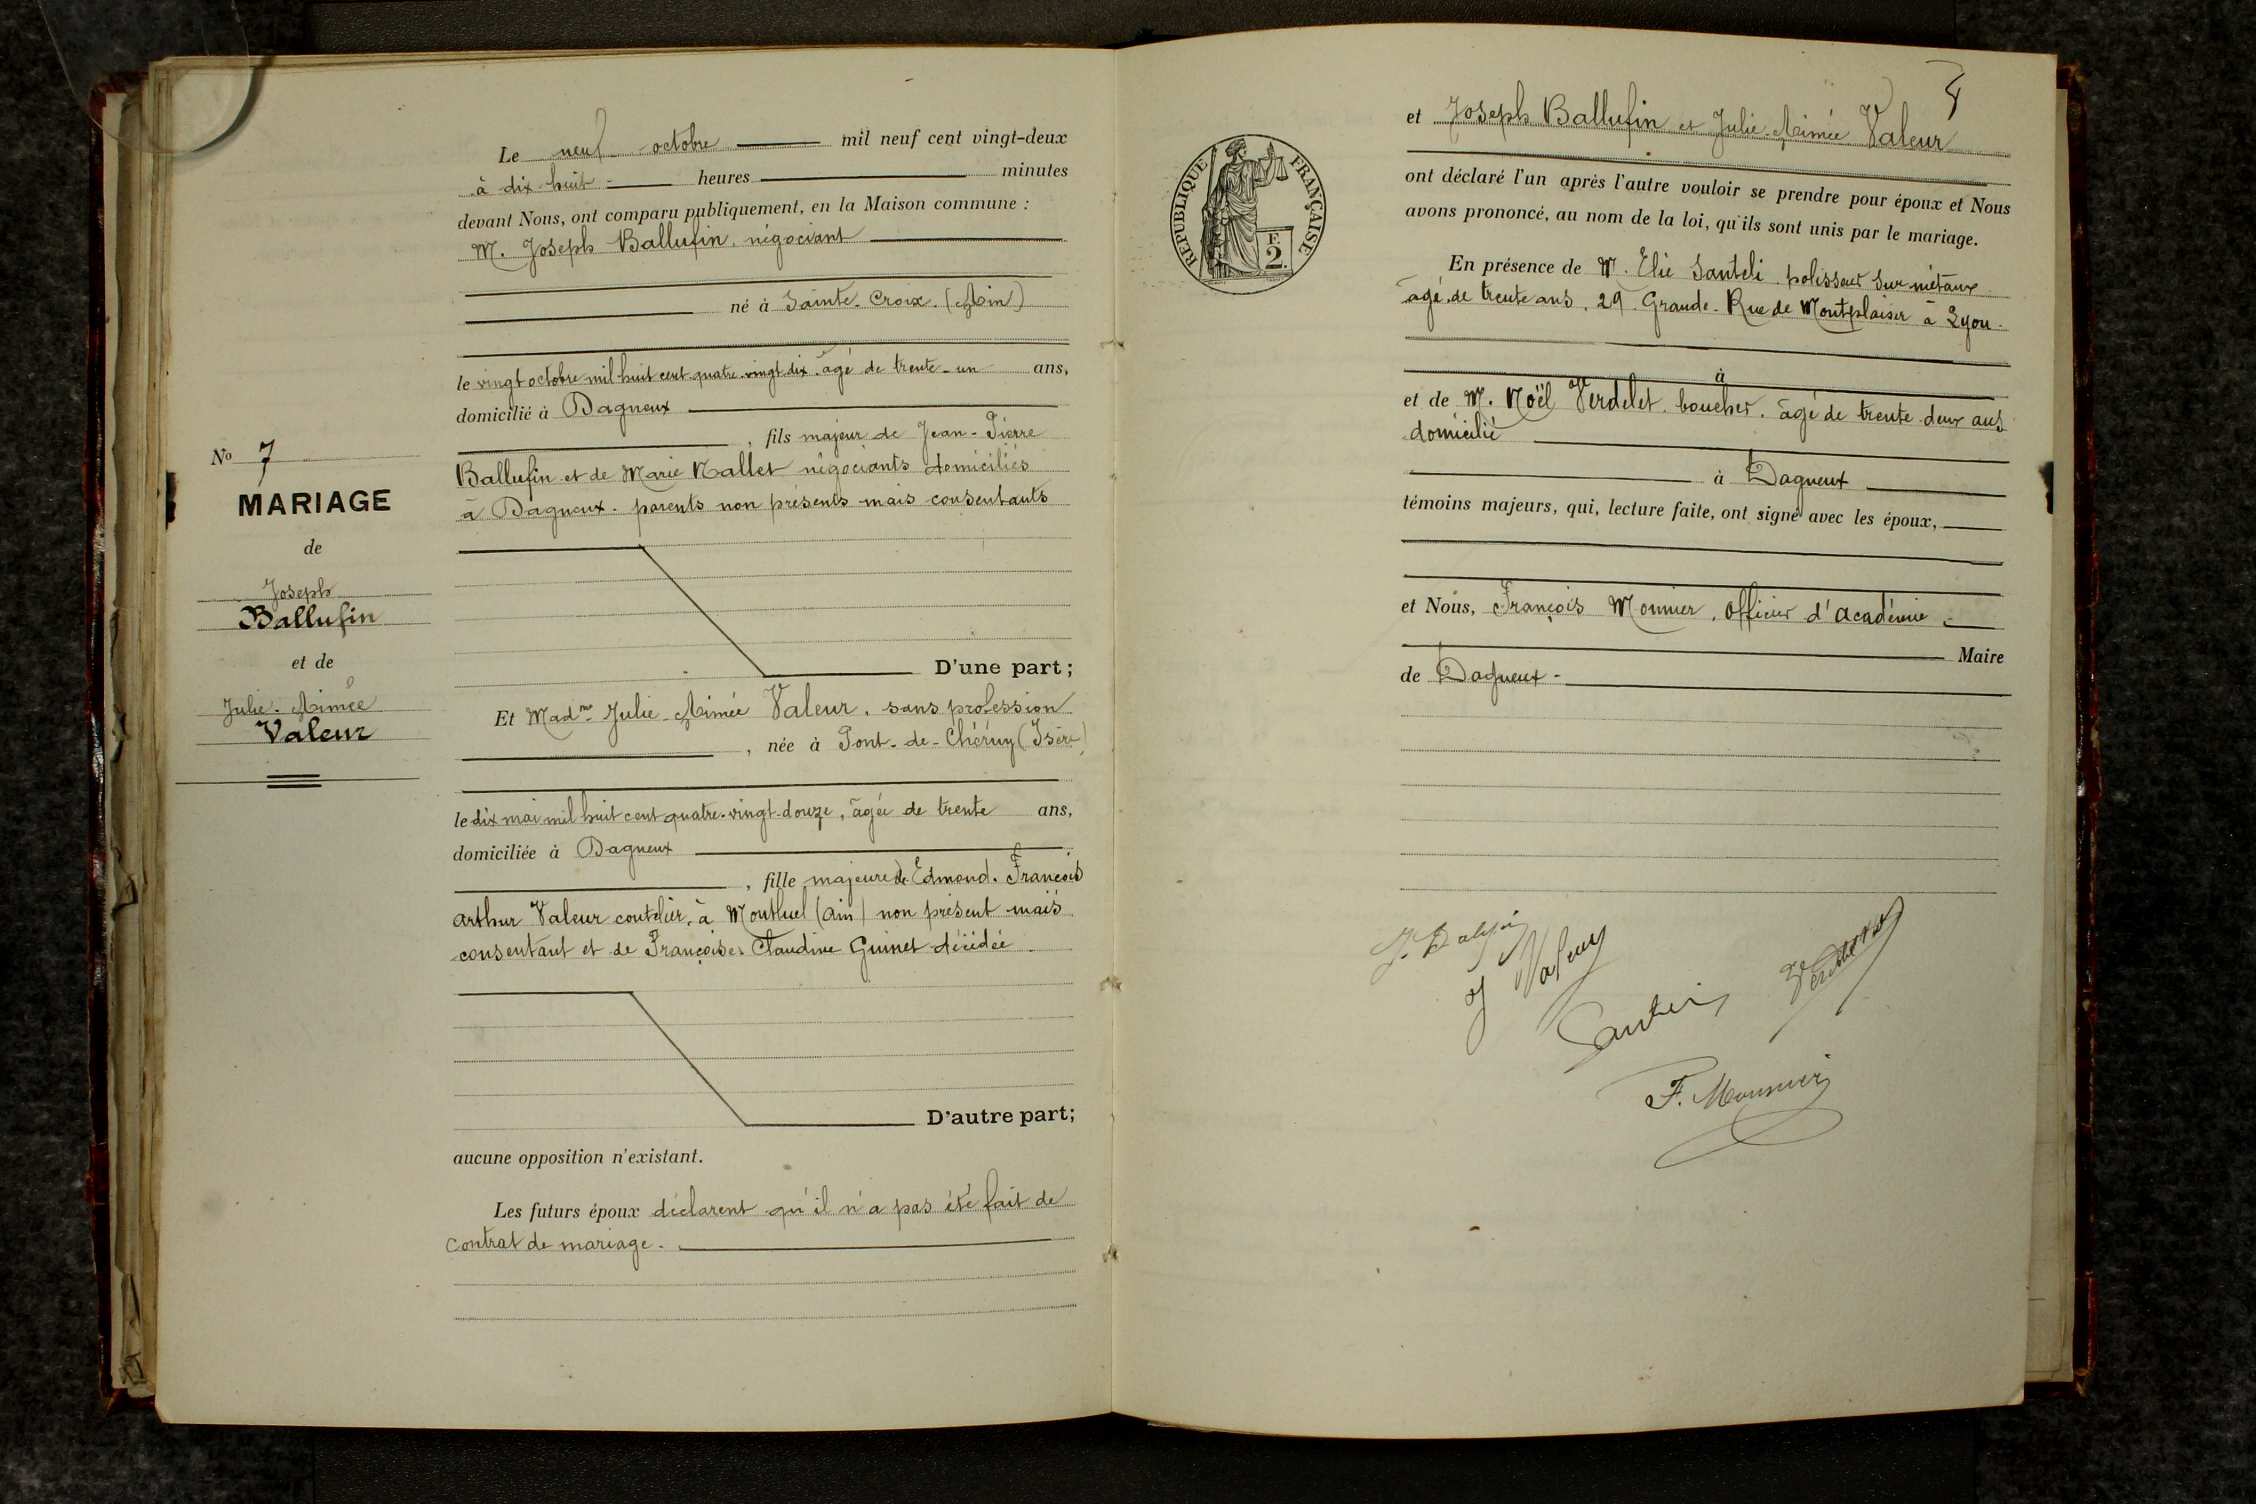 Le neuf octobre mil neuf cent vingt-deux
à dix huit heures minutes
devant Nous, ont comparu publiquement, en la Maison commune :
M. Joseph Ballufin, négociant
né à Sainte-Croix (Ain)
le vingt octobre mil huit cent quatre vingt dix âgé de trente-un ans,
domicilié à Dagneux
, fils majeur de Jean-Pierre
Ballufin et de Marie Nallet négociants domiciliés
à Dagneux. parents non présents mais consentants
D'une part ;
Et Mad^me Julie-Aimée Valeur. sans profession
, née à Pont-de-Chéruy (Isère)
le dix mai mil huit cent quatre-vingt-douze, âgée de trente ans,
domiciliée à Dagneux
, fille majeure de Edmond. François
Arthur Valeur coutelier, à Montluel (Ain) non présent mais
consentant et de Françoise Claudine Guinet décédée
D'autre part ;
aucune opposition n'existant.
Les futurs époux déclarent qu'il n'a pas été fait de
contrat de mariage.
No 7
MARIAGE
de
Joseph
Ballufin
et de
Julie-Aimée
Valeur
RÉPUBLIQUE FRANÇAISE
F.
2.
et Joseph Ballufin et Julie-Aimée Valeur
ont déclaré l'un après l'autre vouloir se prendre pour époux et Nous
avons prononcé, au nom de la loi, qu'ils sont unis par le mariage.
En présence de M. Elie Santeli polisseur sur métaux
âgé de trente ans, 29 Grande-Rue de Montplaisir à Lyon.
à
et de M. Noël Verdelet. boucher. âgé de trente deux ans
domicilié
à Dagneux
témoins majeurs, qui, lecture faite, ont signé avec les époux,
et Nous, François Monnier, Officier d'Académie
Maire
de Dagneux.
J Valeur
Santeli
F. Monnier